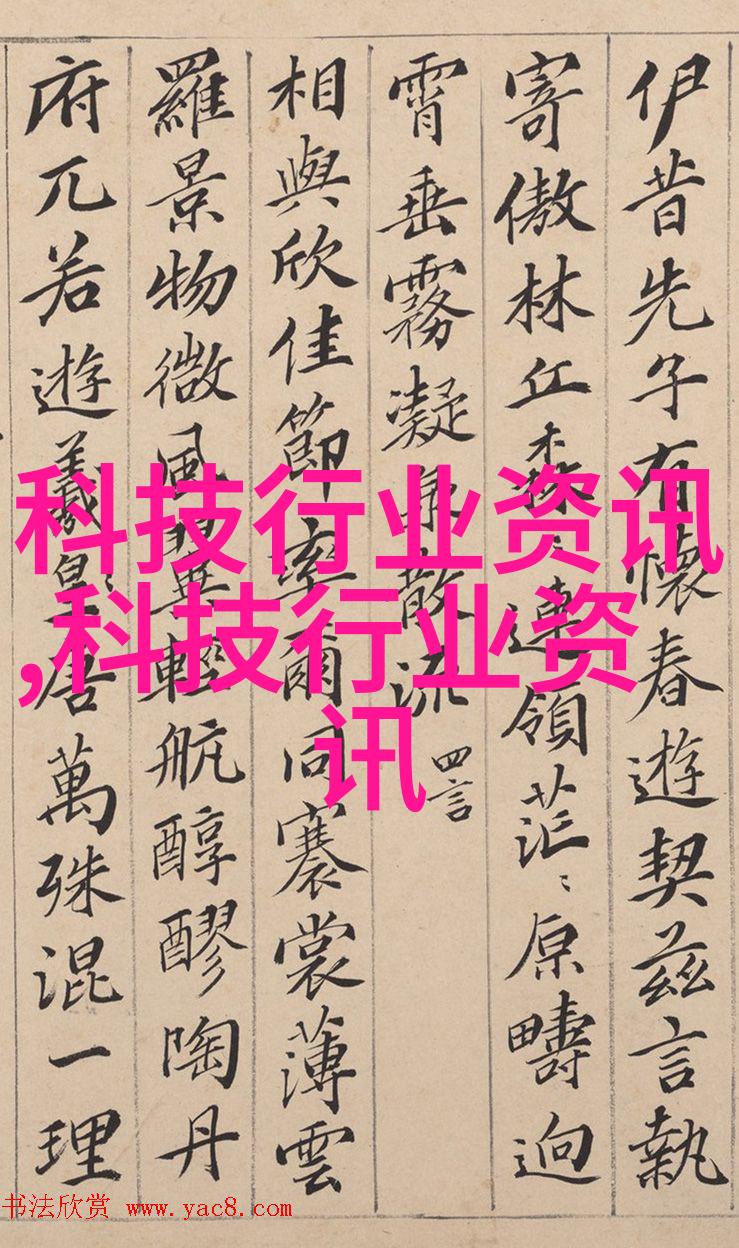 伊昔先子有懷春遊契茲言執
寄傲林丘森〻連領茫〻原疇逈
霄垂霧凝泉散流 四言
相與欣佳節率爾同褰裳薄雲
羅景物微風翼輕航醇醪陶丹
府兀若遊羲皇唐萬殊混一理
科技行业资讯
,科技行业资
讯
书法欣赏 www.yac8.com